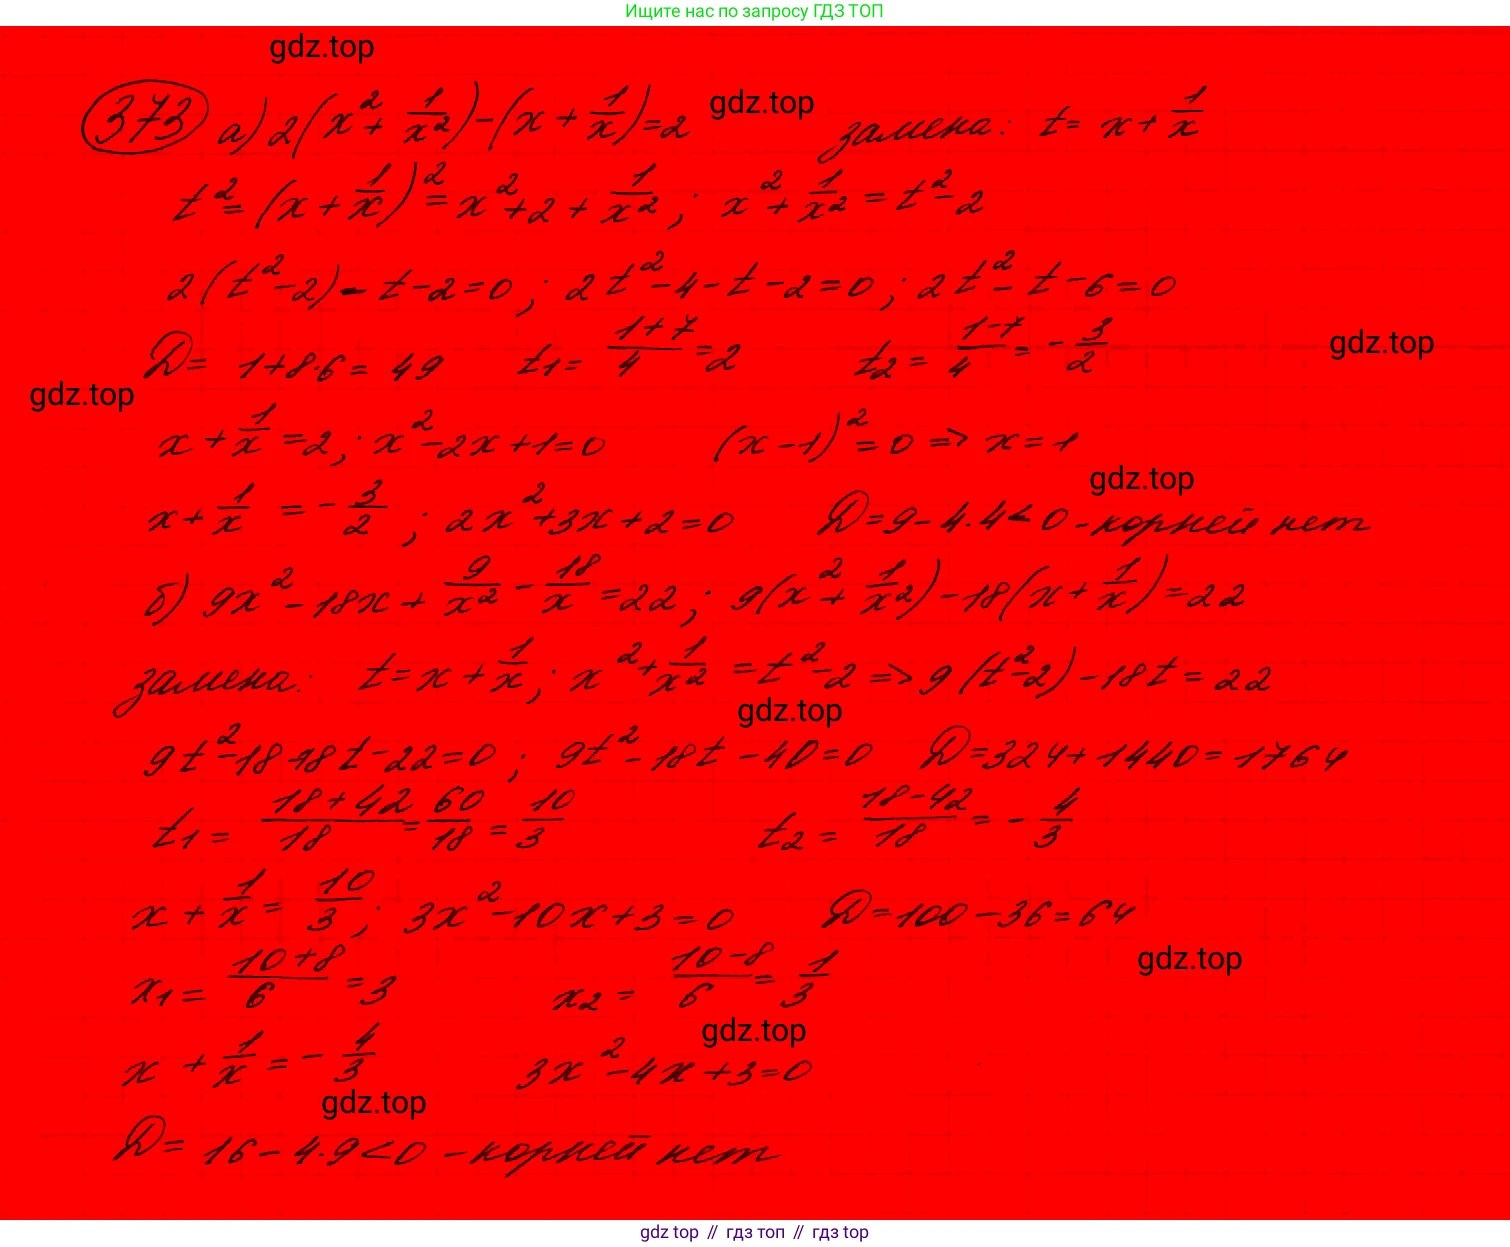 Ищите нас по запросу ГДЗ ТОП
gdz.top
373 а) 2(x² + 1/x²) - (x + 1/x) = 2 gdz.top замена: t = x + 1/x
t² = (x + 1/x)² = x² + 2 + 1/x² ; x² + 1/x² = t² - 2
2(t² - 2) - t - 2 = 0 ; 2t² - 4 - t - 2 = 0 ; 2t² - t - 6 = 0
D = 1 + 8·6 = 49 t₁ = (1+7)/4 = 2 t₂ = (1-7)/4 = - 3/2 gdz.top
gdz.top
x + 1/x = 2 ; x² - 2x + 1 = 0 (x - 1)² = 0 => x = 1
gdz.top
x + 1/x = - 3/2 ; 2x² + 3x + 2 = 0 D = 9 - 4·4 < 0 - корней нет
б) 9x² - 18x + 9/x² - 18/x = 22 ; 9(x² + 1/x²) - 18(x + 1/x) = 22
замена: t = x + 1/x ; x² + 1/x² = t² - 2 => 9(t² - 2) - 18t = 22
gdz.top
9t² - 18 - 18t - 22 = 0 ; 9t² - 18t - 40 = 0 D = 324 + 1440 = 1764
t₁ = (18+42)/18 = 60/18 = 10/3 t₂ = (18-42)/18 = - 4/3
x + 1/x = 10/3 ; 3x² - 10x + 3 = 0 D = 100 - 36 = 64
gdz.top
x₁ = (10+8)/6 = 3 x₂ = (10-8)/6 = 1/3
gdz.top
x + 1/x = - 4/3 3x² - 4x + 3 = 0
gdz.top
D = 16 - 4·9 < 0 - корней нет
gdz top // гдз топ // гдз top